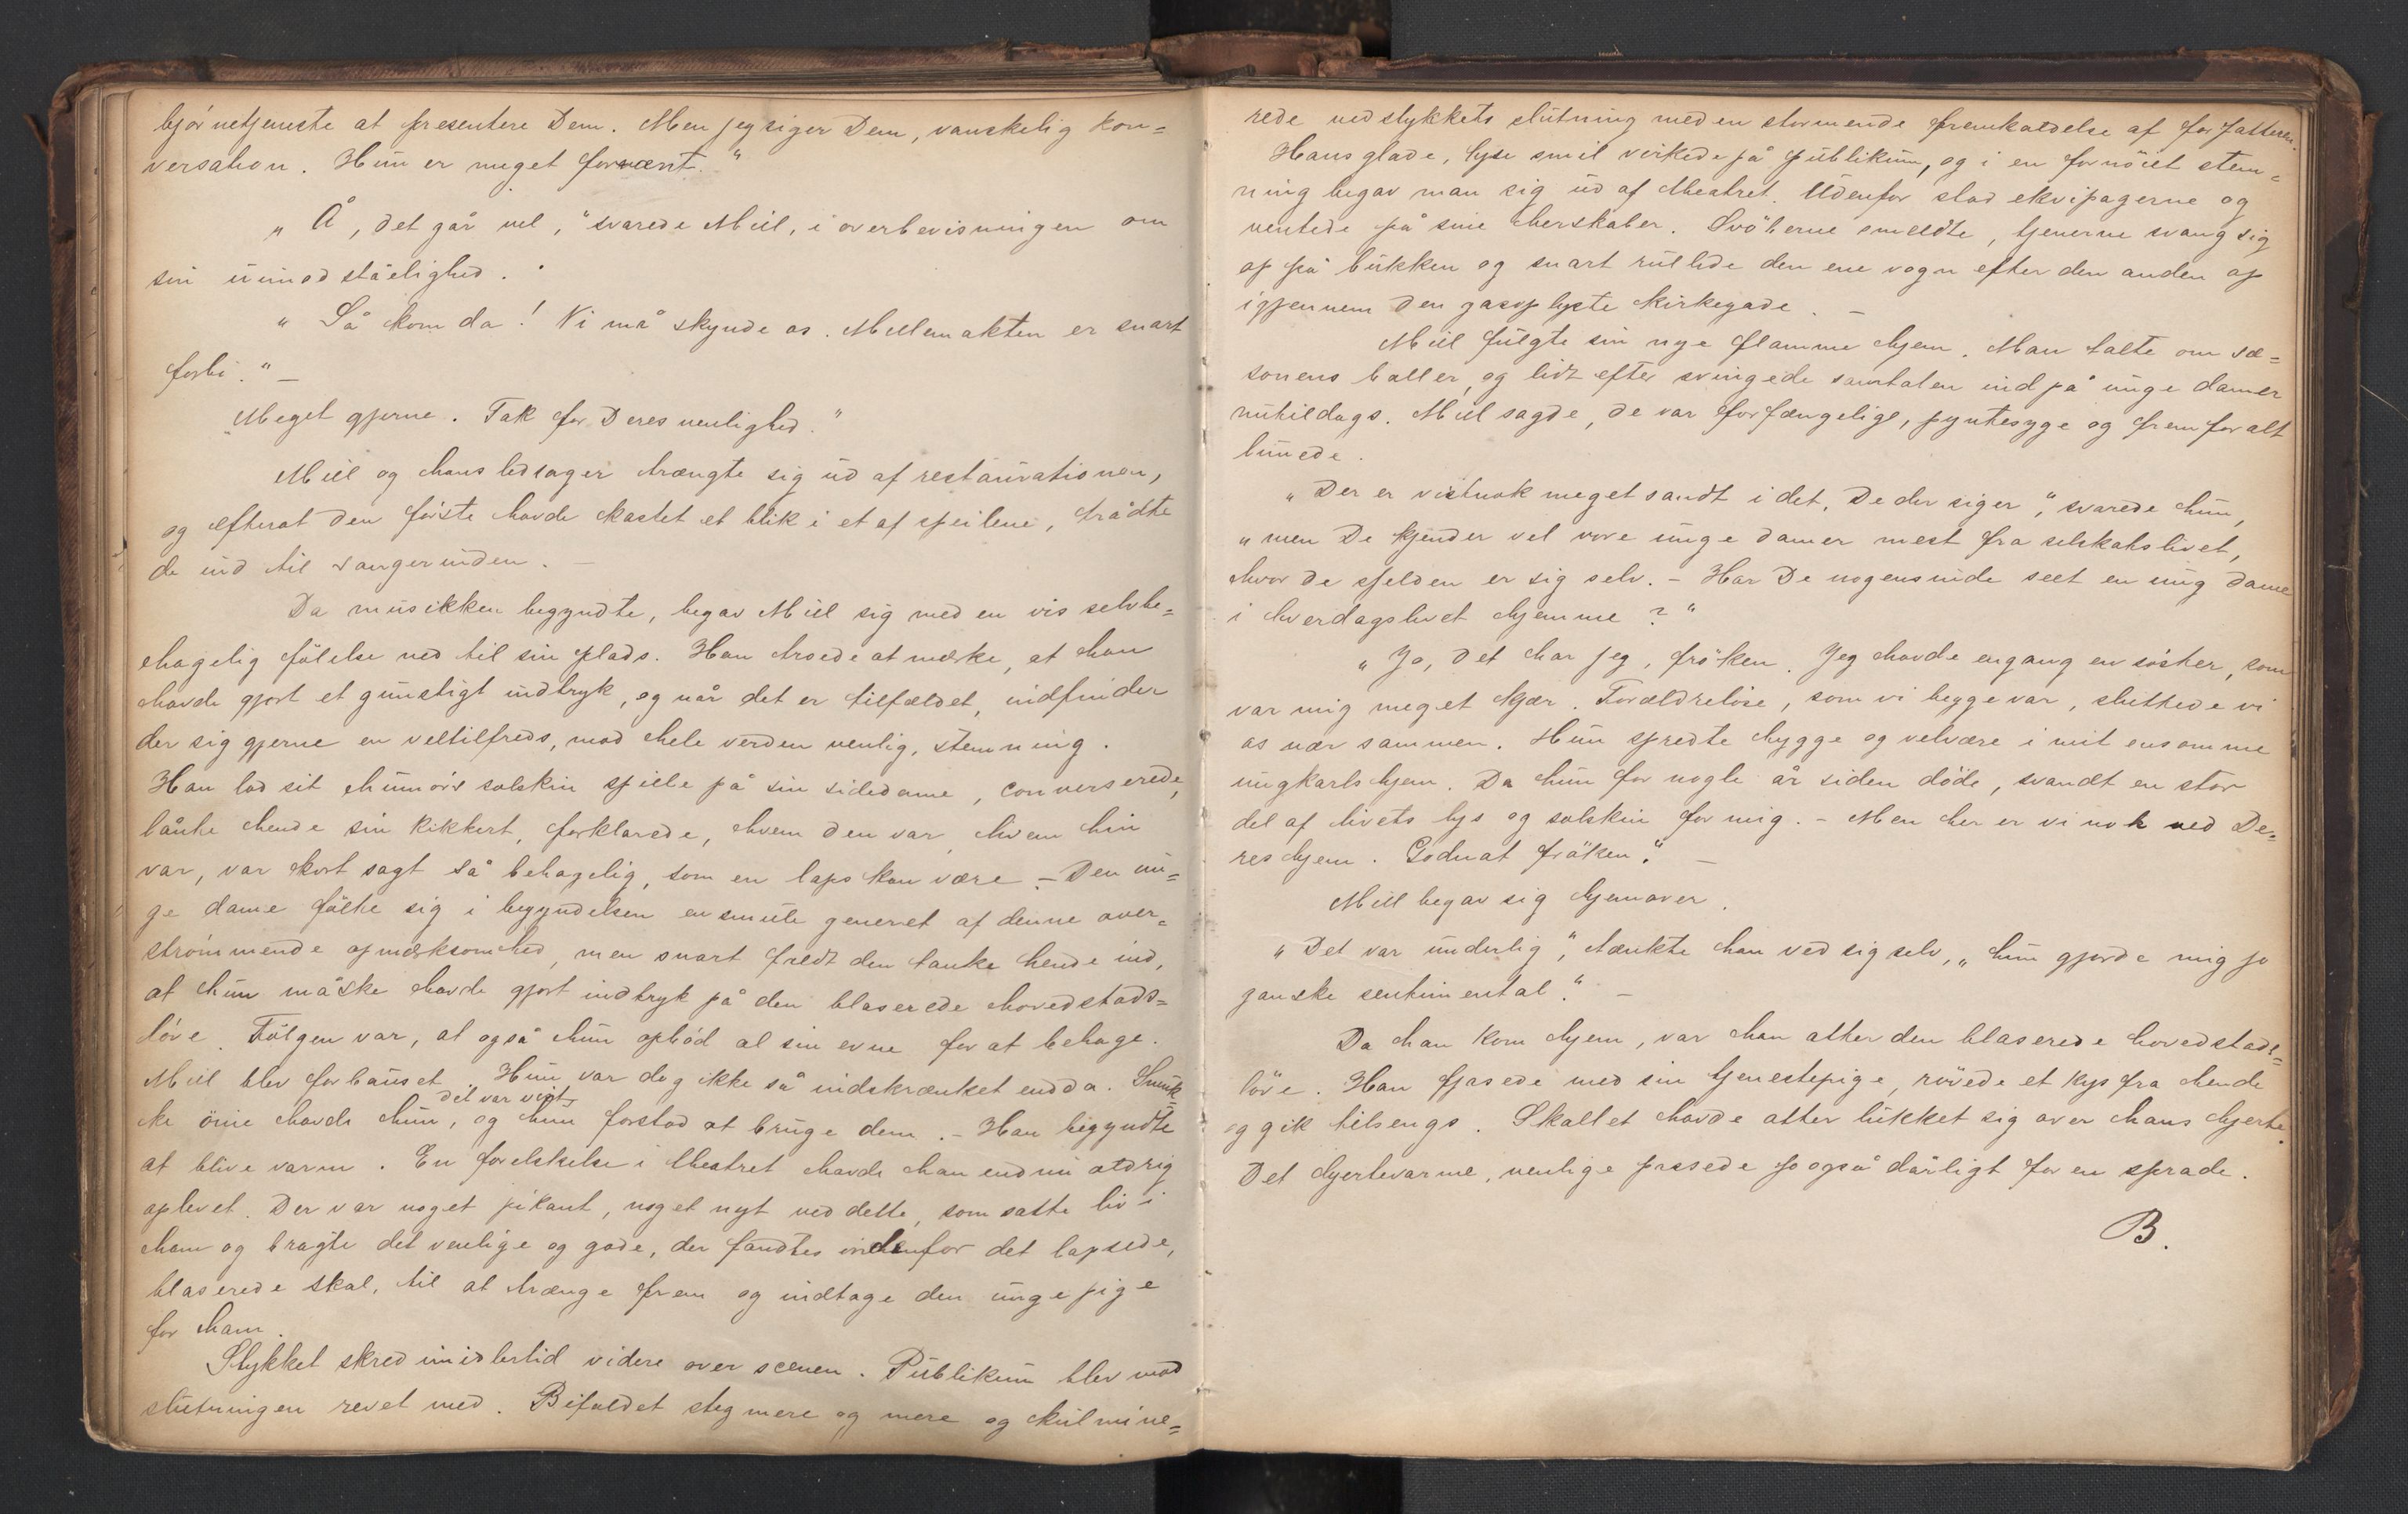 bjørnetjeneste at presentere Dem. Men jeg siger Dem, vanskelig kon=
versation. Hun er meget forvænt."
"Å, det går vel," svarede Miil, i overbevisningen om
sin uimodståelighed.
"Så kom da! Vi må skynde os. Mellemakten er snart
forbi." –
"Meget gjerne. Tak for Deres venlighed."
Miil og hans ledsager trængte sig ud af restaurationen,
og efterat den første havde kastet et blik i et af speilene, trådte
de ind til sangerinden. –
Da musikken begyndte, begav Miil sig med en vis selvbe=
hagelig følelse ned til sin plads. Han troede at mærke, at han
havde gjort et gunstigt indtryk, og når det er tilfældet, indfinder
der sig gjerne en veltilfreds, mod hele verden venlig, stemning.
Han lod sit humørs solskin spille på sin sidedame, converserede,
lånte hende sin kikkert, forklarede, hvem den var, hvem hin
var, var kort sagt så behagelig, som en laps kan være. – Den un=
ge dame følte sig i begyndelsen en smule generet af denne over=
strømmende opmærksomhed, men snart faldt den tanke hende ind,
at hun måske havde gjort indtryk på den blaserede hovedstads=
løve. Følgen var, at også hun opbød al sin evne for at behage.
Miil blev forbauset. Hun var dog ikke så indskrænket endda. Smuk=
ke øine havde hun, det var vist, og hun forstod at bruge dem. – Han begyndte
at blive varm. En forelskelse i theatret havde han endnu aldrig
oplevet. Der var noget pikant, noget nyt ved dette, som satte liv i
ham og bragte det venlige og gode, der fandtes indenfor det lapsede,
blaserede skal, til at trænge frem og indtage den unge pige
for ham.
Stykket skred imidlertid videre over scenen. Publikum blev mod
slutningen revet med. Bifaldet steg mere og mere og kulmine=
rede ved stykkets slutning med en stormende fremkaldelse af forfatteren.
Hans glade, lyse smil virkede på publikum, og i en fornøiet stem=
ning begav man sig ud af theatret. Udenfor stod ekvipagerne og
ventede på sine herskaber. Svøberne smeldte, tjenerne svang sig
op på bukken og snart rullede den ene vogn efter den anden op
igjennem den gasoplyste kirkegade. –
Miil fulgte sin nye flamme hjem. Man talte om sæ=
sonens baller, og lidt efter svingede samtalen ind på unge damer
nutildags. Miil sagde, de var forfængelige, pyntesyge og fremforalt
lunede.
"Der er vistnok meget sandt i det, De der siger," svarede hun,
"men De kjender vel vore unge damer mest fra selskabslivet,
hvor de sjelden er sig selv. – Har De nogensinde seet en ung dame
i hverdagslivet hjemme?"
"Jo, det har jeg, frøken. Jeg havde engang en søster, som
var mig meget kjær. Forældreløse, som vi begge var, sluttede vi
os nær sammen. Hun spredte hygge og velvære i mit ensomme
ungkarlshjem. Da hun for nogle år siden døde, svandt en stor
del af livets lys og solskin for mig. – Men her er vi nok ved De=
res hjem. Godnat frøken." –
Miil begav sig hjemover.
"Det var underlig," tænkte han ved sig selv, "hun gjorde mig jo
ganske sentimental." –
Da han kom hjem, var han atter den blaserede hovedstads=
løve. Han fjasede med sin tjenestepige, røvede et kys fra hende
og gik tilsengs. Skallet havde atter lukket sig over hans hjerte.
Det hjertevarme, venlige passede jo også dårligt for en sprade.
B.